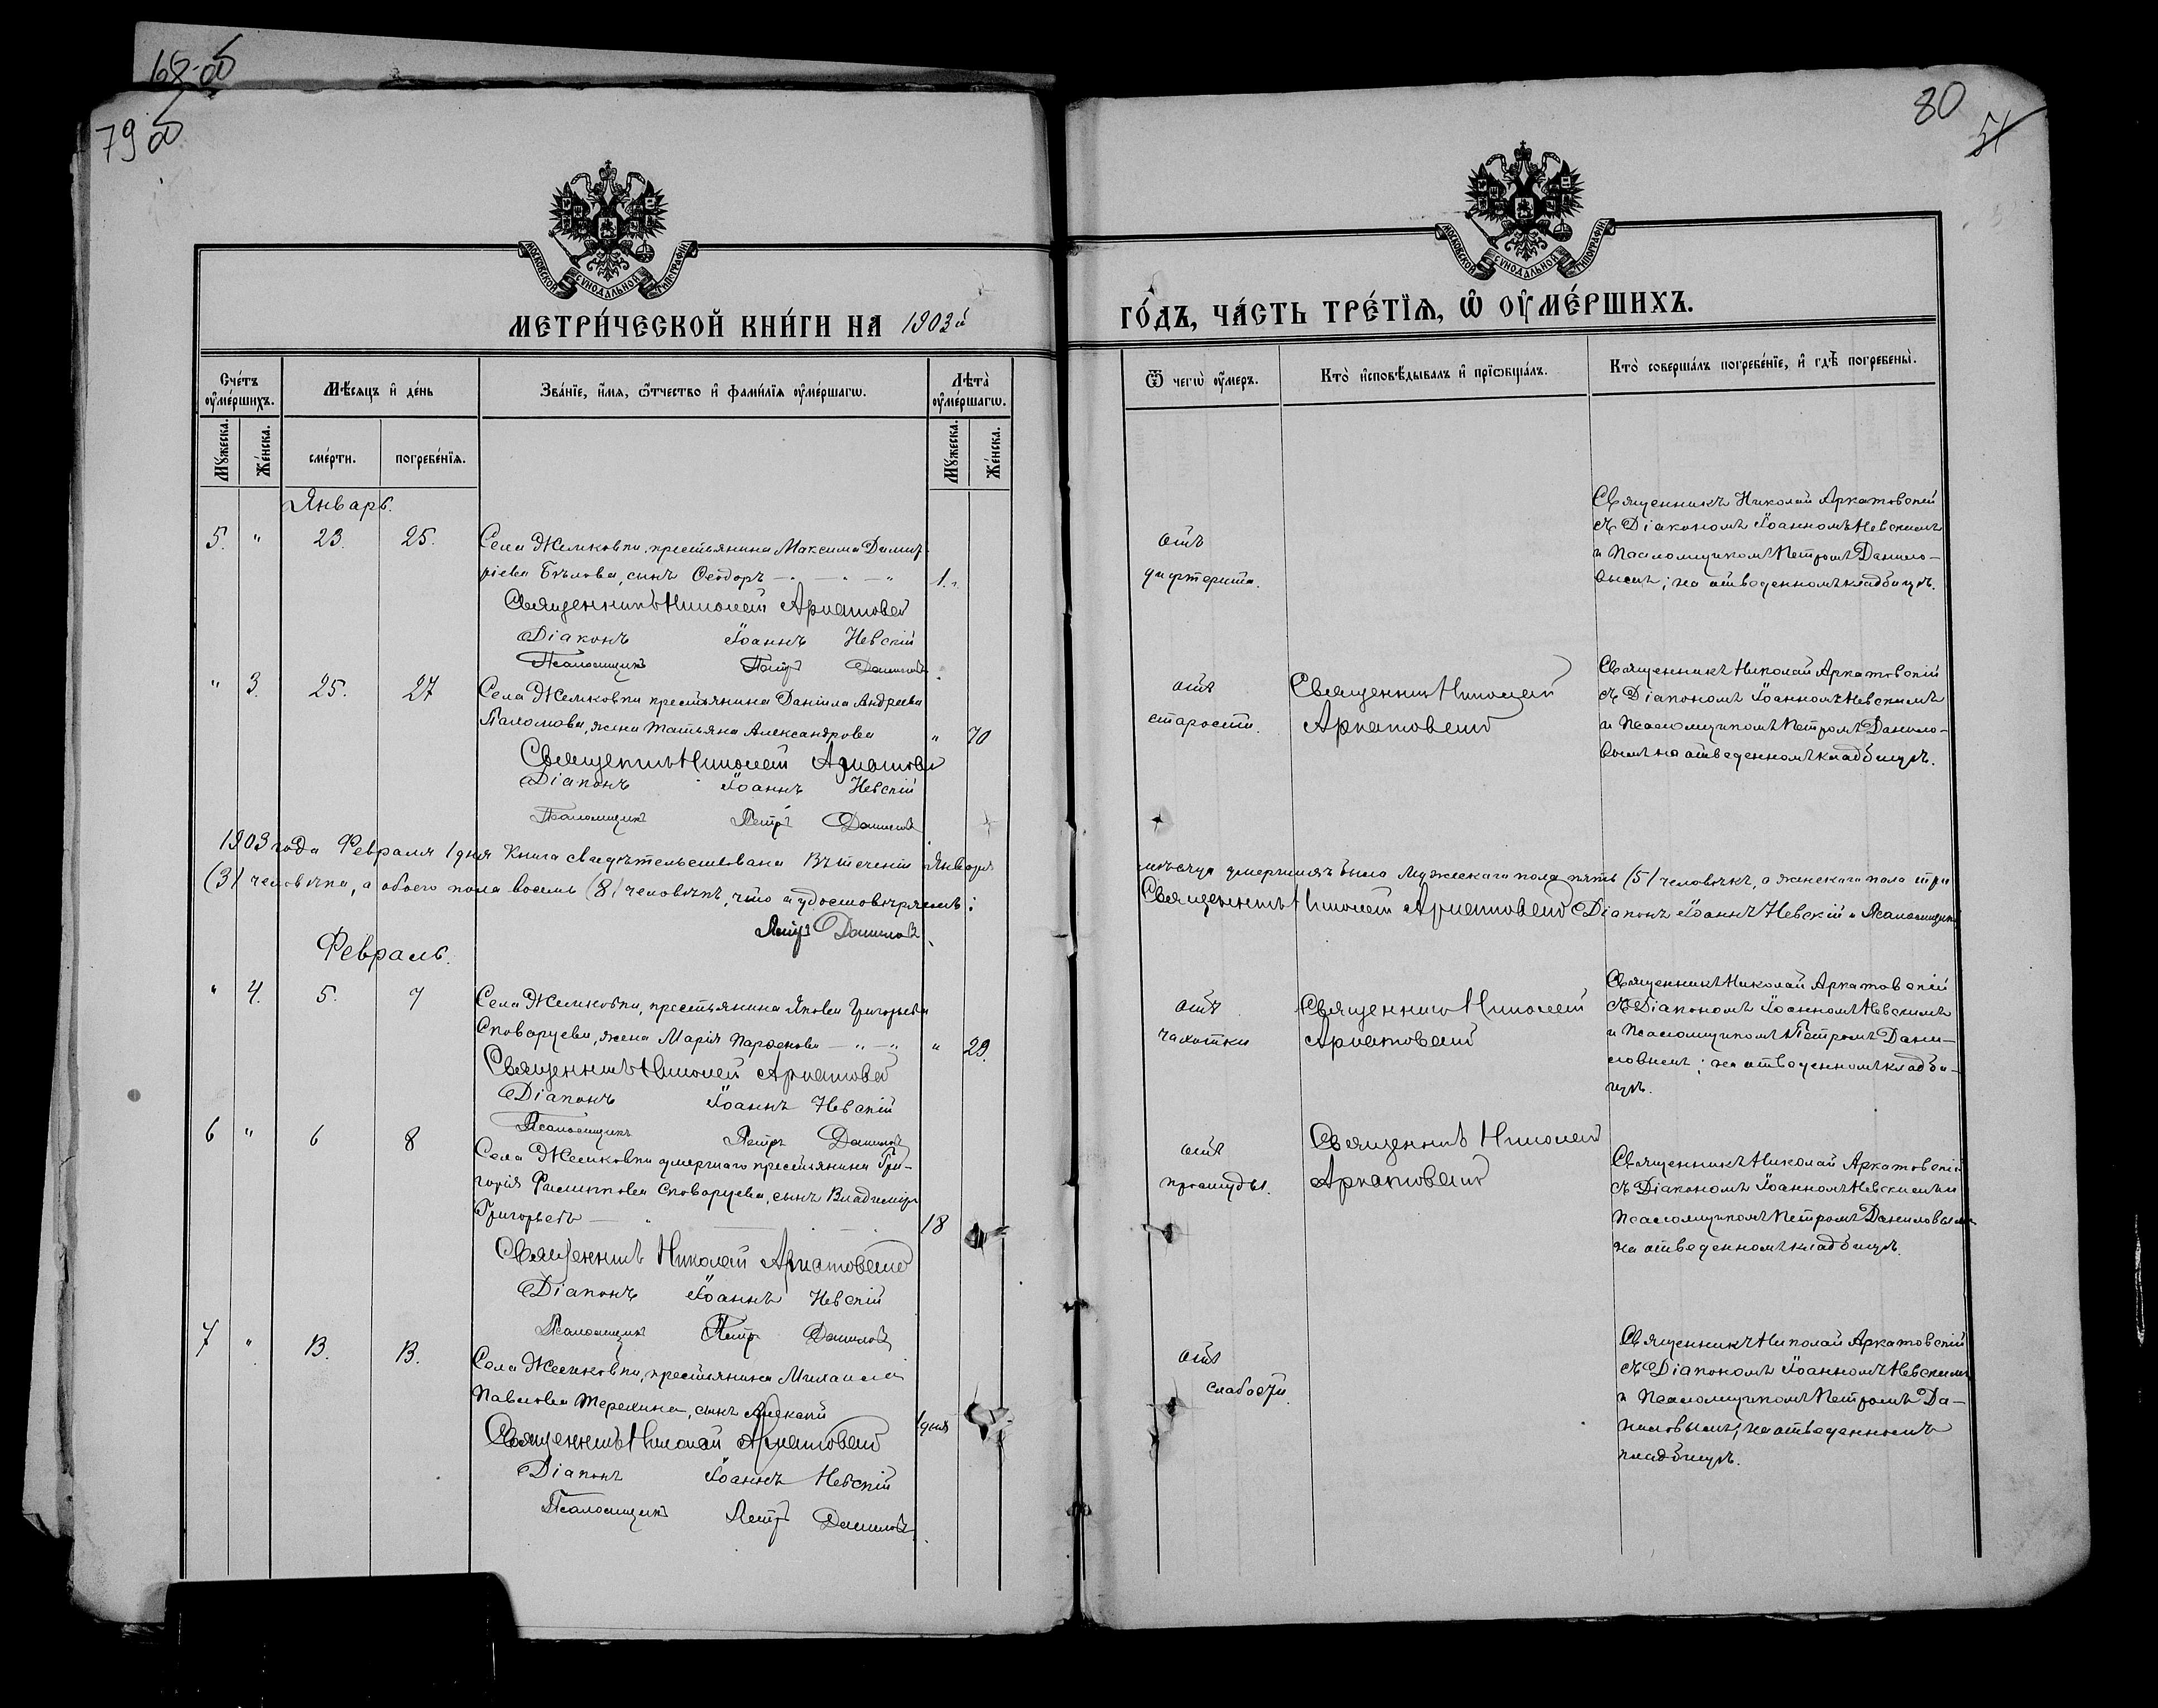 68 об
79 об
80
51
МОСКОВСКОЙ СѴНОДАЛЬНОЙ ТИПОГРАФІИ
МОСКОВСКОЙ СѴНОДАЛЬНОЙ ТИПОГРАФІИ
МЕТРИ́ЧЕСКОЙ КНИ́ГИ НА 1903й
ГО́ДЪ, ЧА́СТЬ ТРЕ́ТІѦ, Ѡ ОУ҆МЕ́РШИХЪ.
Сче́тъ оу҆ме́ршихъ.
Мѣ́сѧцъ и҆ де́нь
Зва́нїе, и҆́мѧ, ѻ҆́тчество и҆ фами́лїѧ оу҆ме́ршагѡ.
Лѣта̀ оу҆ме́ршагѡ.
Мꙋ́жеска.
Же́нска.
сме́рти.
погребе́нїѧ.
Мꙋ́жеска.
Же́нска.
Ѿ чегѡ̀ оу҆́меръ.
Кто̀ и҆сповѣ́дывалъ и҆ прїѡбща́лъ.
Кто̀ соверша́лъ погребе́нїе, и҆ гдѣ̀ погребены̀.
Январь.
5. " 23. 25.
Села Жемковки, крестьянина Максима Димит-
ріева Бѣлова, сынъ Ѳеодоръ — " — " — " 1.
Священникъ Николай Аркатовскій
Діаконъ Іоаннъ Невскій
Псаломщикъ Петръ Даниловъ
отъ
дифтерита.
Священникъ Николай Аркатовскій
съ Діакономъ Іоанномъ Невскимъ
и Псаломщикомъ Петромъ Данило-
вымъ; на отведенномъ кладбищѣ.
" 3. 25. 27
Села Жемковки крестьянина Даніила Андреева
жена Татьяна Александрова " 70
Священникъ Николай Аркатовскій
Діаконъ Іоаннъ Невскій
Псаломщикъ Петръ Даниловъ
отъ
старости.
Священникъ Николай
Аркатовскій
Священникъ Николай Аркатовскій
съ Діакономъ Іоанномъ Невскимъ
и Псаломщикомъ Петромъ Данило-
вымъ на отведенномъ кладбищѣ.
1903 года Февраля 1 дня Книга свидѣтельствована Въ теченіи Января
мѣсяца умершихъ было мужескаго пола пять (5) человѣкъ, а женскаго пола три
(3) человѣка, а обоего пола восемь (8) человѣкъ, что и удостовѣряемъ:
Священникъ Николай Аркатовскій Діаконъ Іоаннъ Невскій и Псаломщикъ
Петръ Даниловъ
Февраль.
" 4. 5. 7
Села Жемковки, крестьянина Якова Григорьева
Сковарцева, жена Марія Парѳенова — " — " " 29.
Священникъ Николай Аркатовскій
Діаконъ Іоаннъ Невскій
Псаломщикъ Петръ Даниловъ
отъ
чахотки
Священникъ Николай
Аркатовскій
Священникъ Николай Аркатовскій
съ Діакономъ Іоанномъ Невскимъ
и Псаломщикомъ Петромъ Дани-
ловымъ; на отведенномъ кладби-
щѣ.
6 " 6 8
Села Жемковки умершаго крестьянина Гри-
горія Филиппова Сковарцева, сынъ Владиміръ
Григорьевъ — 18
Священникъ Николай Аркатовскій
Діаконъ Іоаннъ Невскій
Псаломщикъ Петръ Даниловъ
отъ
простуды.
Священникъ Николай
Аркатовскій
Священникъ Николай Аркатовскій
съ Діакономъ Іоанномъ Невскимъ и
Псаломщикомъ Петромъ Даниловымъ
на отведенномъ кладбищѣ.
7 " 13. 13.
Села Жемковки, крестьянина Михаила
Павлова Терехина, сынъ Алексѣй 1 дня
Священникъ Николай Аркатовскій
Діаконъ Іоаннъ Невскій
Псаломщикъ Петръ Даниловъ.
отъ
слабости.
Священникъ Николай Аркатовскій
съ Діакономъ Іоанномъ Невскимъ
и Псаломщикомъ Петромъ Да-
ниловымъ; на отведенномъ
кладбищѣ.